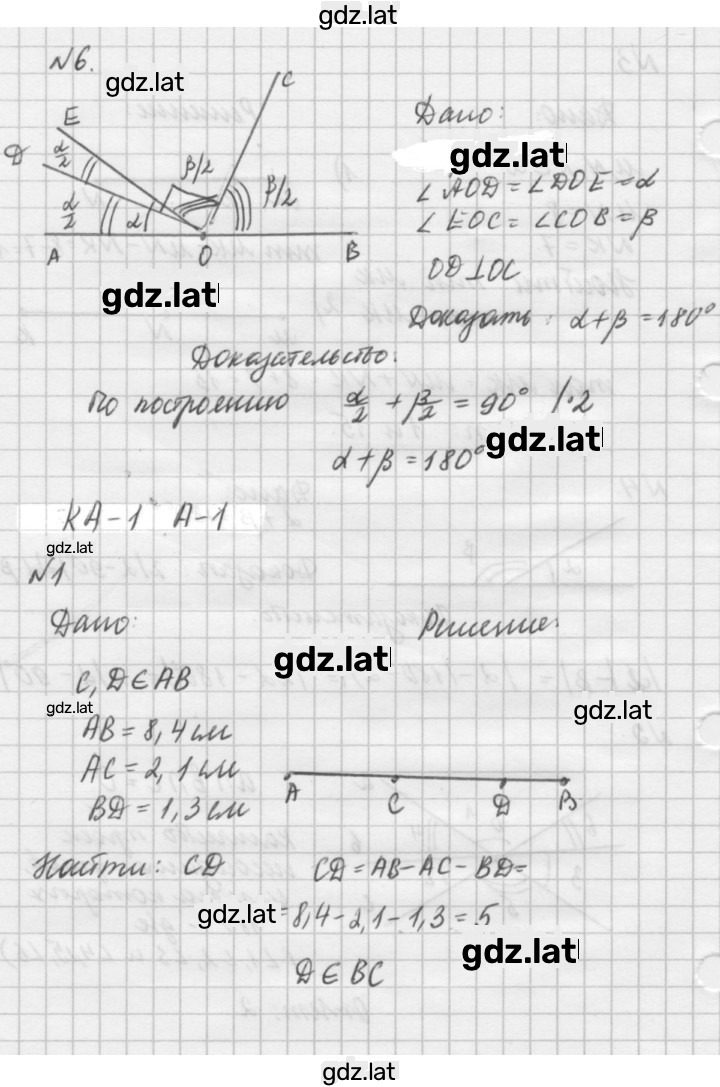 gdz.lat
N6.
gdz.lat
C
E
D
α/2
β/2
β/2
α/2
α
A
O
B
gdz.lat
Дано:
gdz.lat
∠AOD = ∠DOE = α
∠EOC = ∠COB = β
OD⊥OC
Доказать: α+β=180°
Доказательство:
По построению α/2 + β/2 = 90° /·2
gdz.lat
α+β=180°
КА-1 А-1
gdz.lat
N1
Дано:
Решение:
gdz.lat
C, D ∈ AB
gdz.lat
gdz.lat
AB = 8,4 см
AC = 2,1 см
BD = 1,3 см
A C D B
Найти: CD
CD = AB-AC-BD=
gdz.lat
=8,4-2,1-1,3=5
gdz.lat
D ∈ BC
gdz.lat